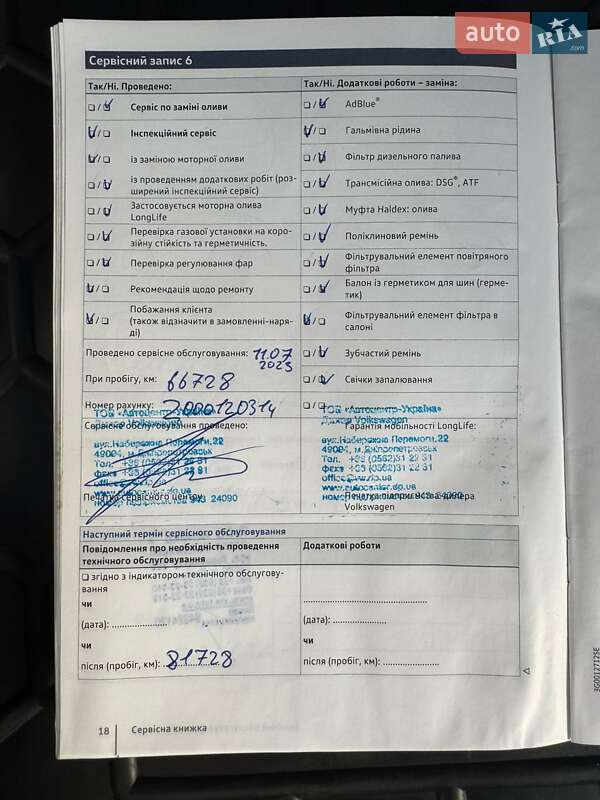 auto RIA .com
Сервісний запис 6
Так/Ні. Проведено:
Так/Ні. Додаткові роботи – заміна:
Сервіс по заміні оливи
AdBlue®
Інспекційний сервіс
Гальмівна рідина
із заміною моторної оливи
Фільтр дизельного палива
із проведенням додаткових робіт (роз-
ширений інспекційний сервіс)
Трансмісійна олива: DSG®, ATF
Застосовується моторна олива
LongLife
Муфта Haldex: олива
Перевірка газової установки на коро-
зійну стійкість та герметичність.
Поліклиновий ремінь
Перевірка регулювання фар
Фільтрувальний елемент повітряного
фільтра
Рекомендація щодо ремонту
Балон із герметиком для шин (герме-
тик)
Побажання клієнта
(також відзначити в замовленні-наря-
ді)
Фільтрувальний елемент фільтра в
салоні
Проведено сервісне обслуговування: 11.07
2023
Зубчастий ремінь
При пробігу, км: 66728
Свічки запалювання
Номер рахунку: 2000120314
ТОВ «Автоцентр-Україна»
Дилер Volkswagen
Сервісне обслуговування проведено:
вул.Набережна Перемоги,22
49094, м.Дніпропетровськ
Тел.
office@vw.dp.ua
www.autocenter.dp.ua
Печатка сервісного центру
24090
ТОВ «Автоцентр-Україна»
Дилер Volkswagen
Гарантія мобільності LongLife:
вул.Набережна Перемоги,22
49094, м.Дніпропетровськ
Тел. +38 (0562)31 22 31
факс +38 (0562)31 22 31
office@vw.dp.ua
www.autocenter.dp.ua
Volkswagen
Наступний термін сервісного обслуговування
Повідомлення про необхідність проведення
технічного обслуговування
Додаткові роботи
згідно з індикатором технічного обслугову-
вання
чи
(дата): ....................
(дата): ....................
чи
чи
після (пробіг, км): 81728
після (пробіг, км): ....................
3G0012712SE
18
Сервісна книжка